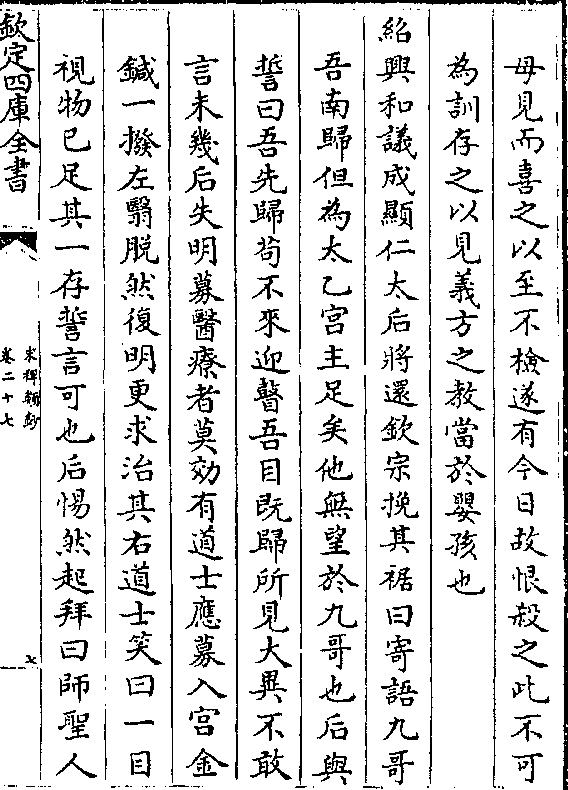 母見而喜之以至不檢遂有今日故恨殺之此不可
為訓存之以見義方之教當於嬰孩也
紹興和議成顯仁太后將還欽宗挽其裾曰寄語九哥
吾南歸但為太乙宮主足矣他無望於九哥也后與
誓曰吾先歸茍不來迎瞽吾目既歸所見大異不敢
言未幾后失明募醫療者莫効有道士應募入宮金
鍼一撥左翳脫然復明更求治其右道士笑曰一目
視物已足其一存誓言可也后惕然起拜曰師聖人
欽定四庫全書
宋稗類鈔
卷二十七
七